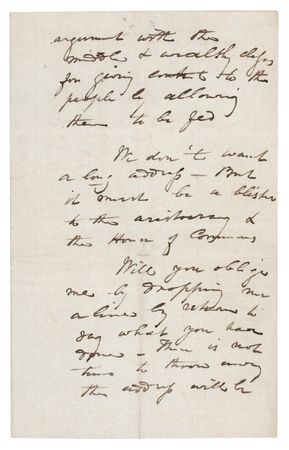 argument with the
middle & wealthy classes
for giving content to the
people by allowing
them to be fed
We don't want
a long address - But
it must be a blister
to the aristocracy &
the House of Commons
Will you oblige
me by dropping me
a line by return to
say what you have
done - There is not
time to throw away
the address will be